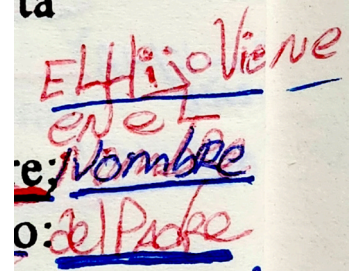 ta
El Hijo Viene
en el
re; Nombre
o: del Padre